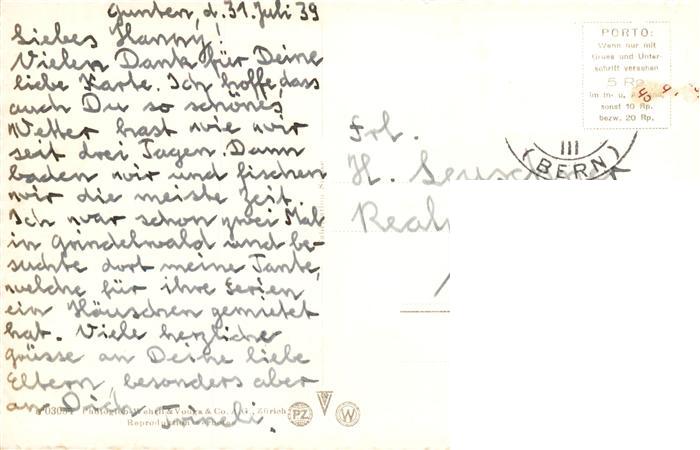 Gunten, d. 31. Juli 39
Liebes Hanny!
Vielen Dank für Deine
liebe Karte. Ich hoffe, dass
auch Du so schönes
Wetter hast wie wir
seit drei Tagen. Dann
baden wir und fischen
wir die meiste Zeit.
Ich war schon zwei Mal
in Grindelwald und be-
suchte dort meine Tante,
welche für ihre Ferien
ein Häuschen gemietet
hat. Viele herzliche
grüsse an Deine liebe
Eltern, besonders aber
an Dich,
03004 Photoglob-Wehrli & Vouga & Co. A.G., Zürich
PZ
W
PORTO:
Wenn nur mit
Gruss und Unter-
schrift versehen
5 Rp.
im In- u.
sonst 10 Rp.
bezw. 20 Rp.
III
(BERN)
Frl.
H.